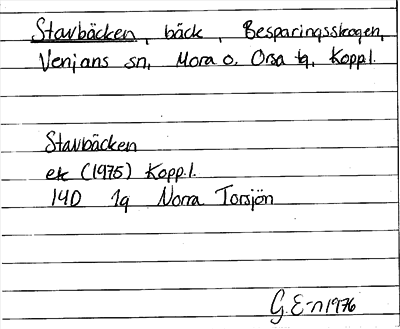 Stavbäcken, bäck, Besparingsskogen,
Venjans sn, Mora o. Orsa tg, Kopp.l.
Stavbäcken
ek (1975) Kopp.l.
14D 1g Norra Torsjön
G.E-n 1976